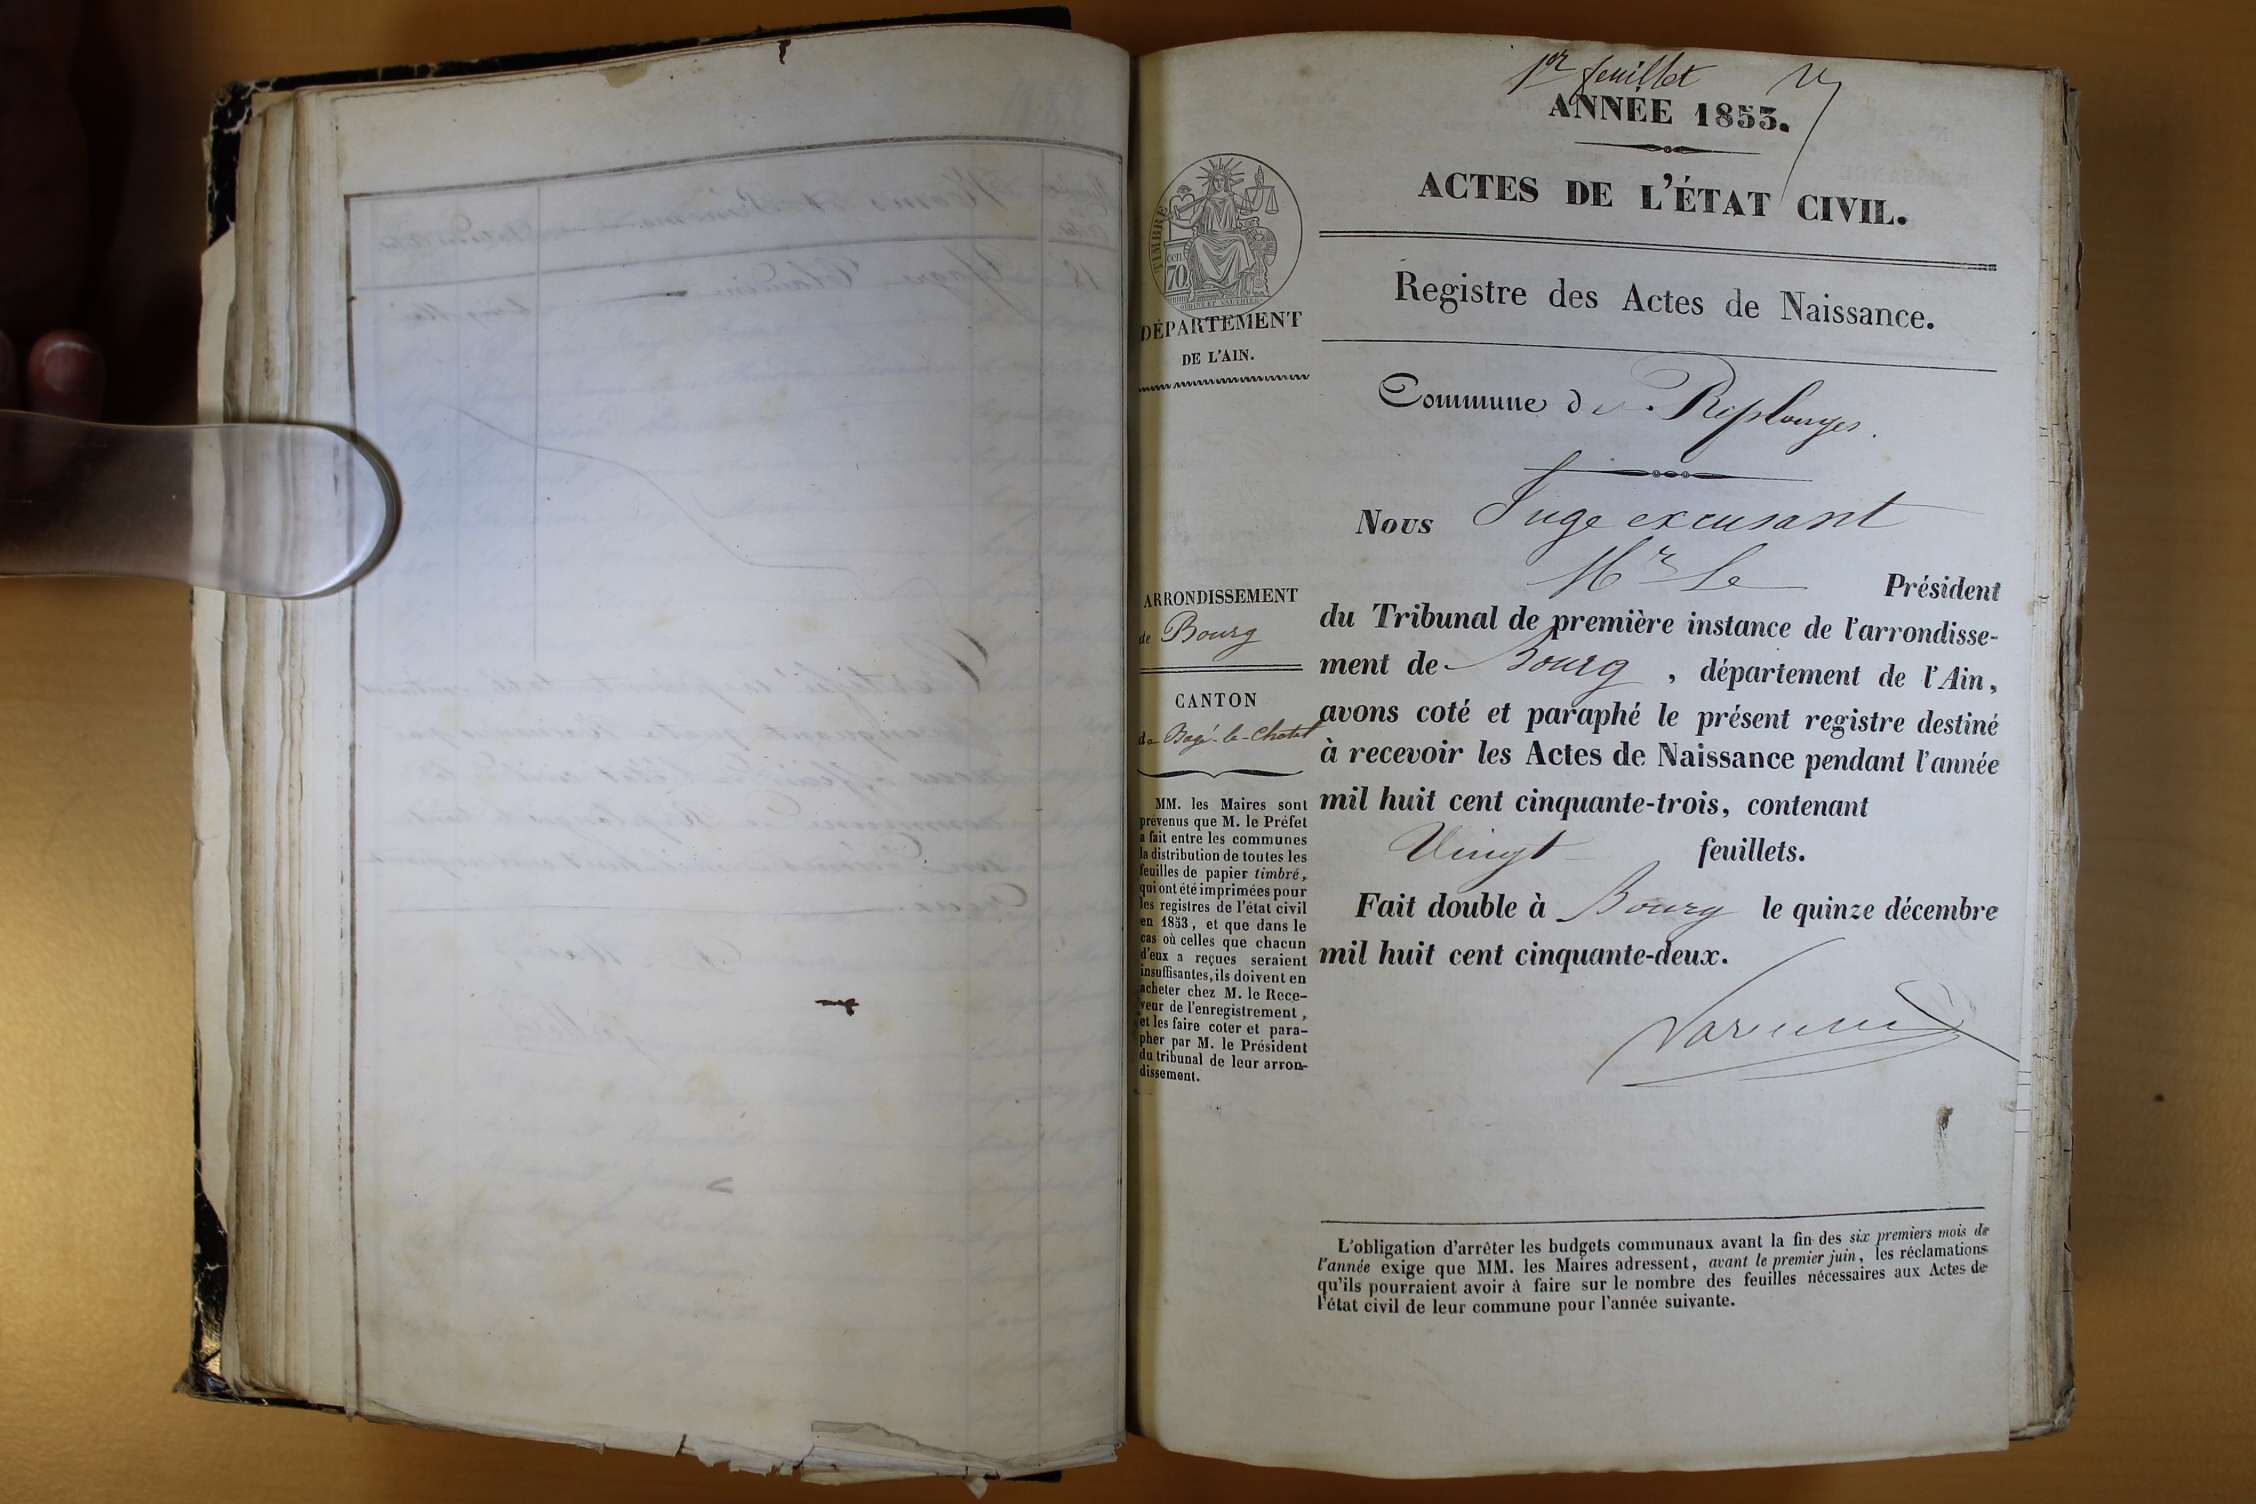 1er feuillet
ANNÉE 1853.
ACTES DE L'ÉTAT CIVIL.
Registre des Actes de Naissance.
TIMBRE
cen.
70.
DÉPARTEMENT
DE L'AIN.
Commune de Replonges.
Nous Juge excusant
Mr Le Président
du Tribunal de première instance de l'arrondisse-
ment de Bourg, département de l'Ain,
avons coté et paraphé le présent registre destiné
à recevoir les Actes de Naissance pendant l'année
mil huit cent cinquante-trois, contenant
Vingt feuillets.
Fait double à Bourg le quinze décembre
mil huit cent cinquante-deux.
ARRONDISSEMENT
de Bourg
CANTON
de Bagé-le-Chatel
MM. les Maires sont
prévenus que M. le Préfet
a fait entre les communes
la distribution de toutes les
feuilles de papier timbré,
qui ont été imprimées pour
les registres de l'état civil
en 1853, et que dans le
cas où celles que chacun
d'eux a reçues seraient
insuffisantes, ils doivent en
acheter chez M. le Rece-
veur de l'enregistrement,
et les faire coter et para-
pher par M. le Président
du tribunal de leur arron-
dissement.
L'obligation d'arrêter les budgets communaux avant la fin des six premiers mois de
l'année exige que MM. les Maires adressent, avant le premier juin, les réclamations
qu'ils pourraient avoir à faire sur le nombre des feuilles nécessaires aux Actes de
l'état civil de leur commune pour l'année suivante.